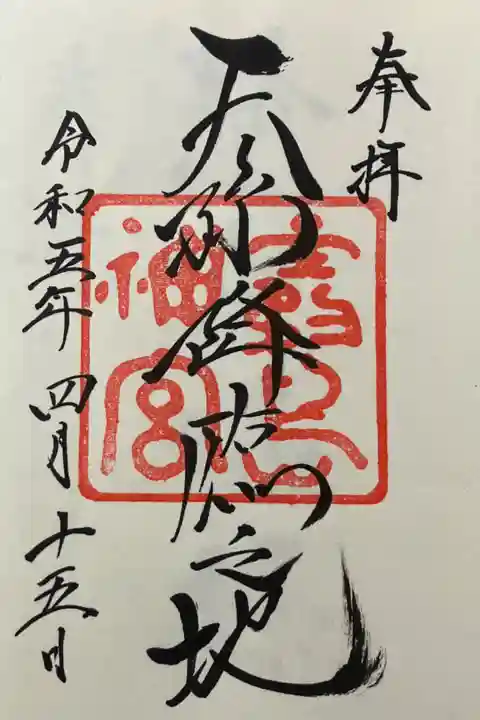 奉拝
天孫降臨之地
神宮
令和五年四月十五日